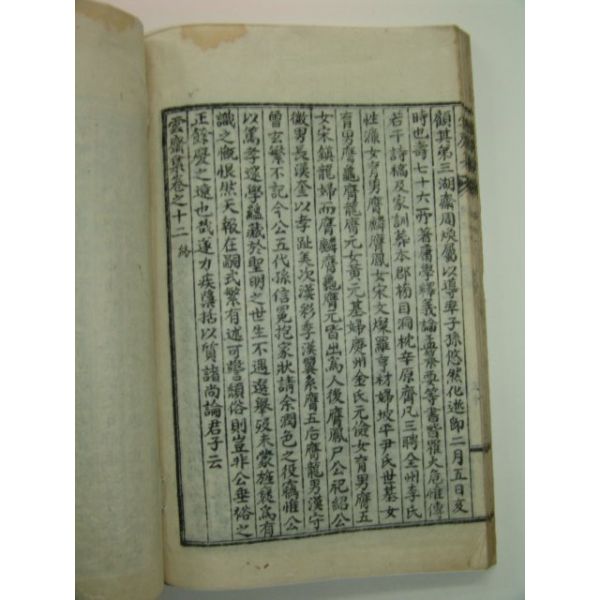 顧其弟三湖齋周煥屬以導率子孫悠然化逝卽二月五日亥
時也壽七十六所著庸學繹義論孟齋要等書皆罹火危惟傳
若干詩稿及家訓葬本郡栃目洞枕辛原齊凡三聘全州李氏
性濂女育男膺麟膺鳳女宋文燦羅亨材婦坡平尹氏世基女
育男膺龜膺龍膺元女黃元基婦慶州金氏元儉女育男膺五
女宋鎮龍婦而膺麟膺龜膺元皆出爲人後膺鳳尸公祀紹公
微男長漢奎以孝趾美次漢彩李漢翼系膺五后膺龍男漢守
曾玄繁不記今公五代孫信冕抱家狀請余潤色之役竊惟公
以篤孝邃學蘊藏於聖明之世生不遇選擧歿未蒙旌褒爲有
識之慨恨然天報在嗣式繁有述可警頹俗則豈非公垂裕之
正餘慶之遠也哉遂力疾檃括以質諸尚論君子云
雲齋集卷之十二 終